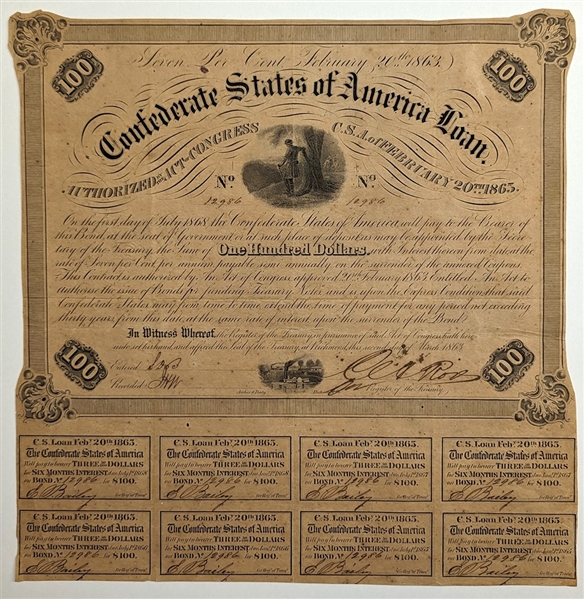 Seven Per Cent February 20th 1863.
100
100
Confederate States of America Loan.
AUTHORIZED BY ACT OF CONGRESS C.S.A. of FEBRUARY 20TH 1863.
No. No.
12986 12986
On the first day of July 1868 the Confederate States of America, will pay to the Bearer of
this Bond, at the seat of Government, or at such place of deposit as may be appointed by the Secre-
tary of the Treasury, the Sum of One Hundred Dollars, with Interest thereon from date, at the
rate of Seven per Cent. per annum, payable semi annually on the surrender of the annexed Coupons.
This Contract is authorized by an Act of Congress, approved 20th February 1863, Entitled, An Act to
authorize the issue of Bonds for funding Treasury Notes, and is upon the Express Condition, that said
Confederate States may from time to time extend the time of payment for any period not exceeding
thirty years from this date, at the same rate of interest, upon the surrender of the Bond.
In Witness Whereof, the Register of the Treasury, in pursuance of said Act of Congress, hath here-
unto set his hand and affixed the Seal of the Treasury, at Richmond, this 1863.
100
100
Entered
Recorded
Register of the Treasury.
C.S. Loan Feby. 20th 1863.
The Confederate States of America
Will pay to bearer THREE DOLLARS
for SIX MONTHS INTEREST
BOND No. 12986 for $100.
for Reg. of Treas.
C.S. Loan Feby. 20th 1863.
The Confederate States of America
Will pay to bearer THREE DOLLARS
for SIX MONTHS INTEREST
BOND No. 12986 for $100.
for Reg. of Treas.
C.S. Loan Feby. 20th 1863.
The Confederate States of America
Will pay to bearer THREE DOLLARS
for SIX MONTHS INTEREST
BOND No. 12986 for $100.
for Reg. of Treas.
C.S. Loan Feby. 20th 1863.
The Confederate States of America
Will pay to bearer THREE DOLLARS
for SIX MONTHS INTEREST
BOND No. 12986 for $100.
for Reg. of Treas.
C.S. Loan Feby. 20th 1863.
The Confederate States of America
Will pay to bearer THREE DOLLARS
for SIX MONTHS INTEREST
BOND No. 12986 for $100.
for Reg. of Treas.
C.S. Loan Feby. 20th 1863.
The Confederate States of America
Will pay to bearer THREE DOLLARS
for SIX MONTHS INTEREST
BOND No. 12986 for $100.
for Reg. of Treas.
C.S. Loan Feby. 20th 1863.
The Confederate States of America
Will pay to bearer THREE DOLLARS
for SIX MONTHS INTEREST
BOND No. 12986 for $100.
for Reg. of Treas.
C.S. Loan Feby. 20th 1863.
The Confederate States of America
Will pay to bearer THREE DOLLARS
for SIX MONTHS INTEREST
BOND No. 12986 for $100.
for Reg. of Treas.